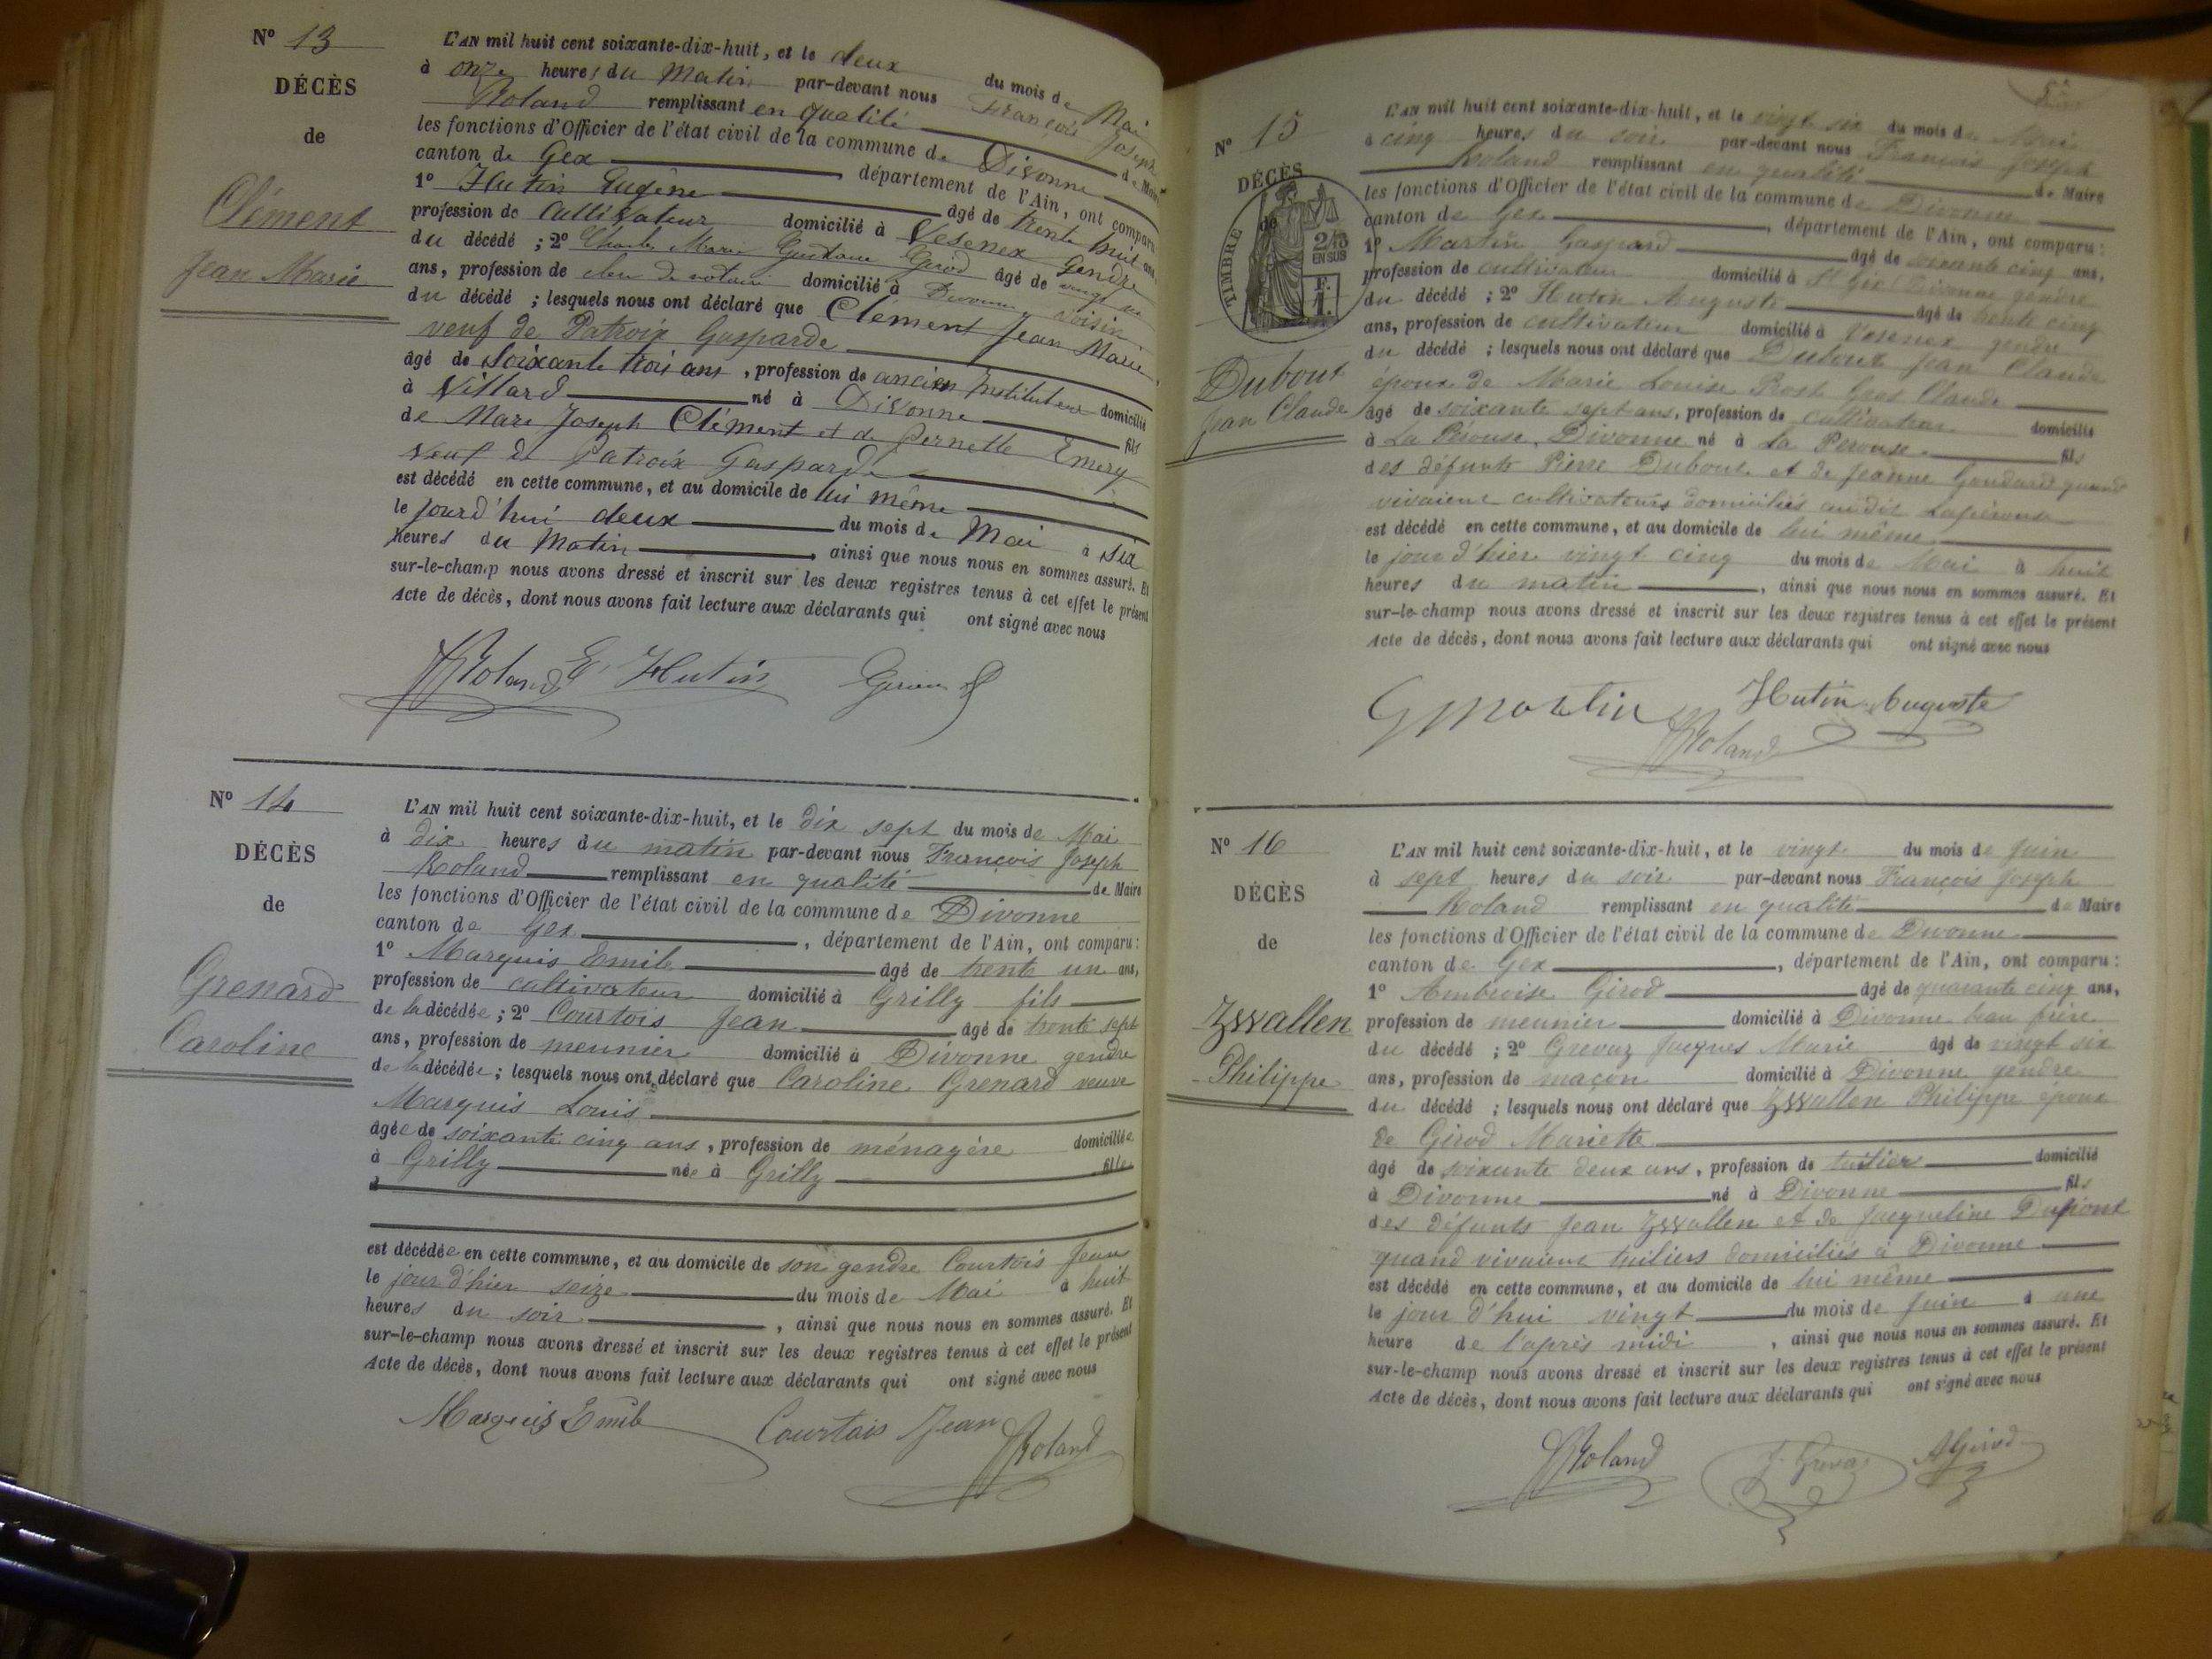 Nº 13
DÉCÈS
de
Clément
Jean Marie
L'AN mil huit cent soixante-dix-huit, et le deux du mois de Mai
à onze heures du Matin par-devant nous François Joseph
Roland remplissant en qualité de Maire
les fonctions d'Officier de l'état civil de la commune de Divonne
canton de Gex, département de l'Ain, ont comparu
1º Hutin Eugène âgé de trente huit ans
profession de Cultivateur domicilié à Vesenex Gendre
du décédé ; 2º Charles Marie Gustave Girod âgé de vingt
ans, profession de clerc de notaire domicilié à Divonne voisin
du décédé ; lesquels nous ont déclaré que Clément Jean Marie
veuf de Patroix Gasparde
âgé de Soixante trois ans, profession de ancien Instituteur domicilié
à Villard né à Divonne fils
de Marc Joseph Clément et de Pernette Emery
veuf de Patroix Gasparde
est décédé en cette commune, et au domicile de lui même
le jourd'hui deux du mois de Mai à six
heures du Matin, ainsi que nous nous en sommes assuré. Et
sur-le-champ nous avons dressé et inscrit sur les deux registres tenus à cet effet le présent
Acte de décès, dont nous avons fait lecture aux déclarants qui ont signé avec nous
Roland E Hutin
Nº 14
DÉCÈS
de
Grenard
Caroline
L'AN mil huit cent soixante-dix-huit, et le dix sept du mois de Mai
à dix heures du matin par-devant nous François Joseph
Roland remplissant en qualité de Maire
les fonctions d'Officier de l'état civil de la commune de Divonne
canton de Gex, département de l'Ain, ont comparu :
1º Marquis Emile âgé de trente un ans,
profession de cultivateur domicilié à Grilly fils
de la décédée ; 2º Courtois Jean âgé de trente sept
ans, profession de meunier domicilié à Divonne gendre
de la décédée ; lesquels nous ont déclaré que Caroline Grenard veuve
Marquis Louis
âgée de soixante cinq ans, profession de ménagère domiciliée
à Grilly née à Grilly fille
d
est décédée en cette commune, et au domicile de son gendre Courtois Jean
le jour d'hier seize du mois de Mai à huit
heures du soir, ainsi que nous nous en sommes assuré. Et
sur-le-champ nous avons dressé et inscrit sur les deux registres tenus à cet effet le présent
Acte de décès, dont nous avons fait lecture aux déclarants qui ont signé avec nous
Marquis Emile Courtois Jean Roland
Nº 15
DÉCÈS
de
TIMBRE
2/5
EN SUS
F.
1.
Dubout
Jean Claude
L'AN mil huit cent soixante-dix-huit, et le vingt six du mois de Mai
à cinq heures du soir par-devant nous François Joseph
Roland remplissant en qualité de Maire
les fonctions d'Officier de l'état civil de la commune de Divonne
canton de Gex, département de l'Ain, ont comparu :
1º Martin Gaspard âgé de soixante cinq ans,
profession de cultivateur domicilié à St Gix Divonne gendre
du décédé ; 2º Hutin Auguste âgé de trente cinq
ans, profession de cultivateur domicilié à Vesenex gendre
du décédé ; lesquels nous ont déclaré que Dubout Jean Claude
époux de Marie Louise Rost Gros Claude
âgé de soixante sept ans, profession de cultivateur domicilié
à La Pérouse, Divonne né à La Pérouse fils
des défunts Pierre Dubout et de Jeanne Goudard quand
vivaient cultivateurs domiciliés audit Lapérouse
est décédé en cette commune, et au domicile de lui même
le jour d'hier vingt cinq du mois de Mai à huit
heures du matin, ainsi que nous nous en sommes assuré. Et
sur-le-champ nous avons dressé et inscrit sur les deux registres tenus à cet effet le présent
Acte de décès, dont nous avons fait lecture aux déclarants qui ont signé avec nous
G Martin Hutin Auguste
Roland
Nº 16
DÉCÈS
de
Zwallen
Philippe
L'AN mil huit cent soixante-dix-huit, et le vingt du mois de Juin
à sept heures du soir par-devant nous François Joseph
Roland remplissant en qualité de Maire
les fonctions d'Officier de l'état civil de la commune de Divonne
canton de Gex, département de l'Ain, ont comparu :
1º Ambroise Girod âgé de quarante cinq ans,
profession de meunier domicilié à Divonne beau frère
du décédé ; 2º Grevaz Jacques Marie âgé de vingt six
ans, profession de maçon domicilié à Divonne gendre
du décédé ; lesquels nous ont déclaré que Zwallen Philippe époux
de Girod Mariette
âgé de soixante deux ans, profession de tuilier domicilié
à Divonne né à Divonne fils
des défunts Jean Zwallen et de Jacqueline Dupont
quand vivaient tuiliers domiciliés à Divonne
est décédé en cette commune, et au domicile de lui même
le jour d'hui vingt du mois de Juin à une
heure de l'après midi, ainsi que nous nous en sommes assuré. Et
sur-le-champ nous avons dressé et inscrit sur les deux registres tenus à cet effet le présent
Acte de décès, dont nous avons fait lecture aux déclarants qui ont signé avec nous
Roland J. Grevaz A Girod